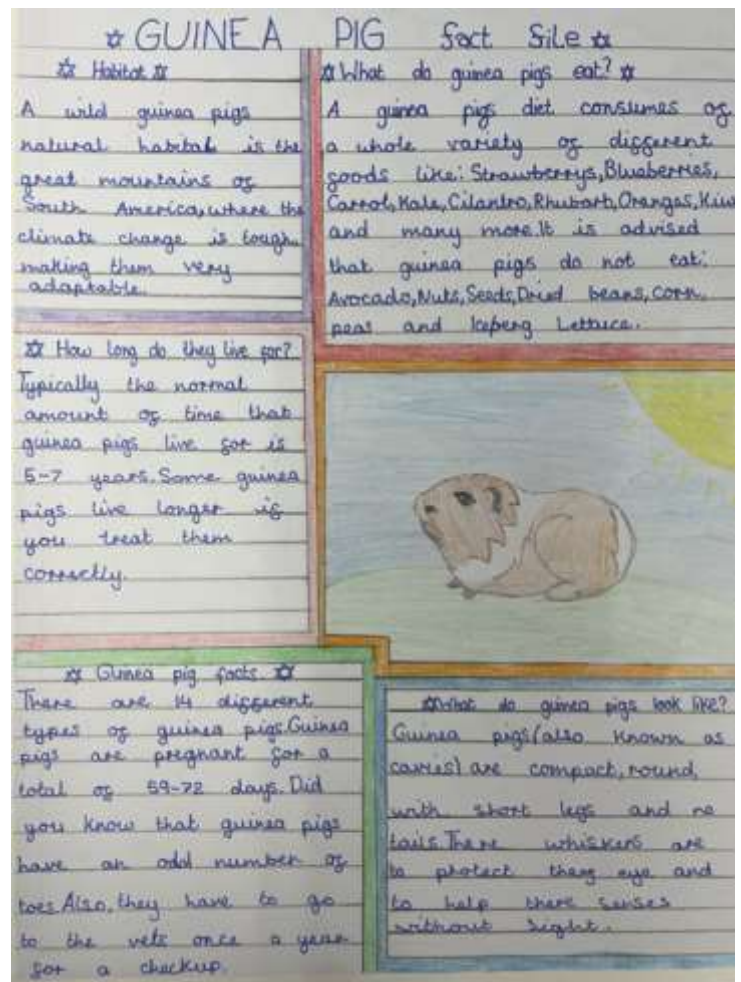 ☆ GUINEA PIG fact file ☆
☆ Habitat ☆
A wild guinea pigs
natural habitat is the
great mountains of
South America, where the
climate change is tough
making them very
adaptable.
☆ What do guinea pigs eat? ☆
A guinea pigs diet consumes of
a whole variety of different
foods like: Strawberrys, Blueberries,
Carrot, Kale, Cilantro, Rhubarb, Oranges, Kiwi
and many more. It is advised
that guinea pigs do not eat:
Avocado, Nuts, Seeds, Dried beans, Corn,
peas and Iceberg Lettuce.
☆ How long do they live for?
Typically the normal
amount of time that
guinea pigs live for is
5-7 years. Some guinea
pigs live longer if
you treat them
correctly.
☆ Guinea pig facts. ☆
There are 14 different
types of guinea pigs. Guinea
pigs are pregnant for a
total of 59-72 days. Did
you know that guinea pigs
have an odd number of
toes. Also, they have to go
to the vets once a year
for a checkup.
☆ What do guinea pigs look like?
Guinea pigs (also known as
cavies) are compact, round,
with short legs and no
tails. There whiskers are
to protect eye and
to help there senses
without sight.